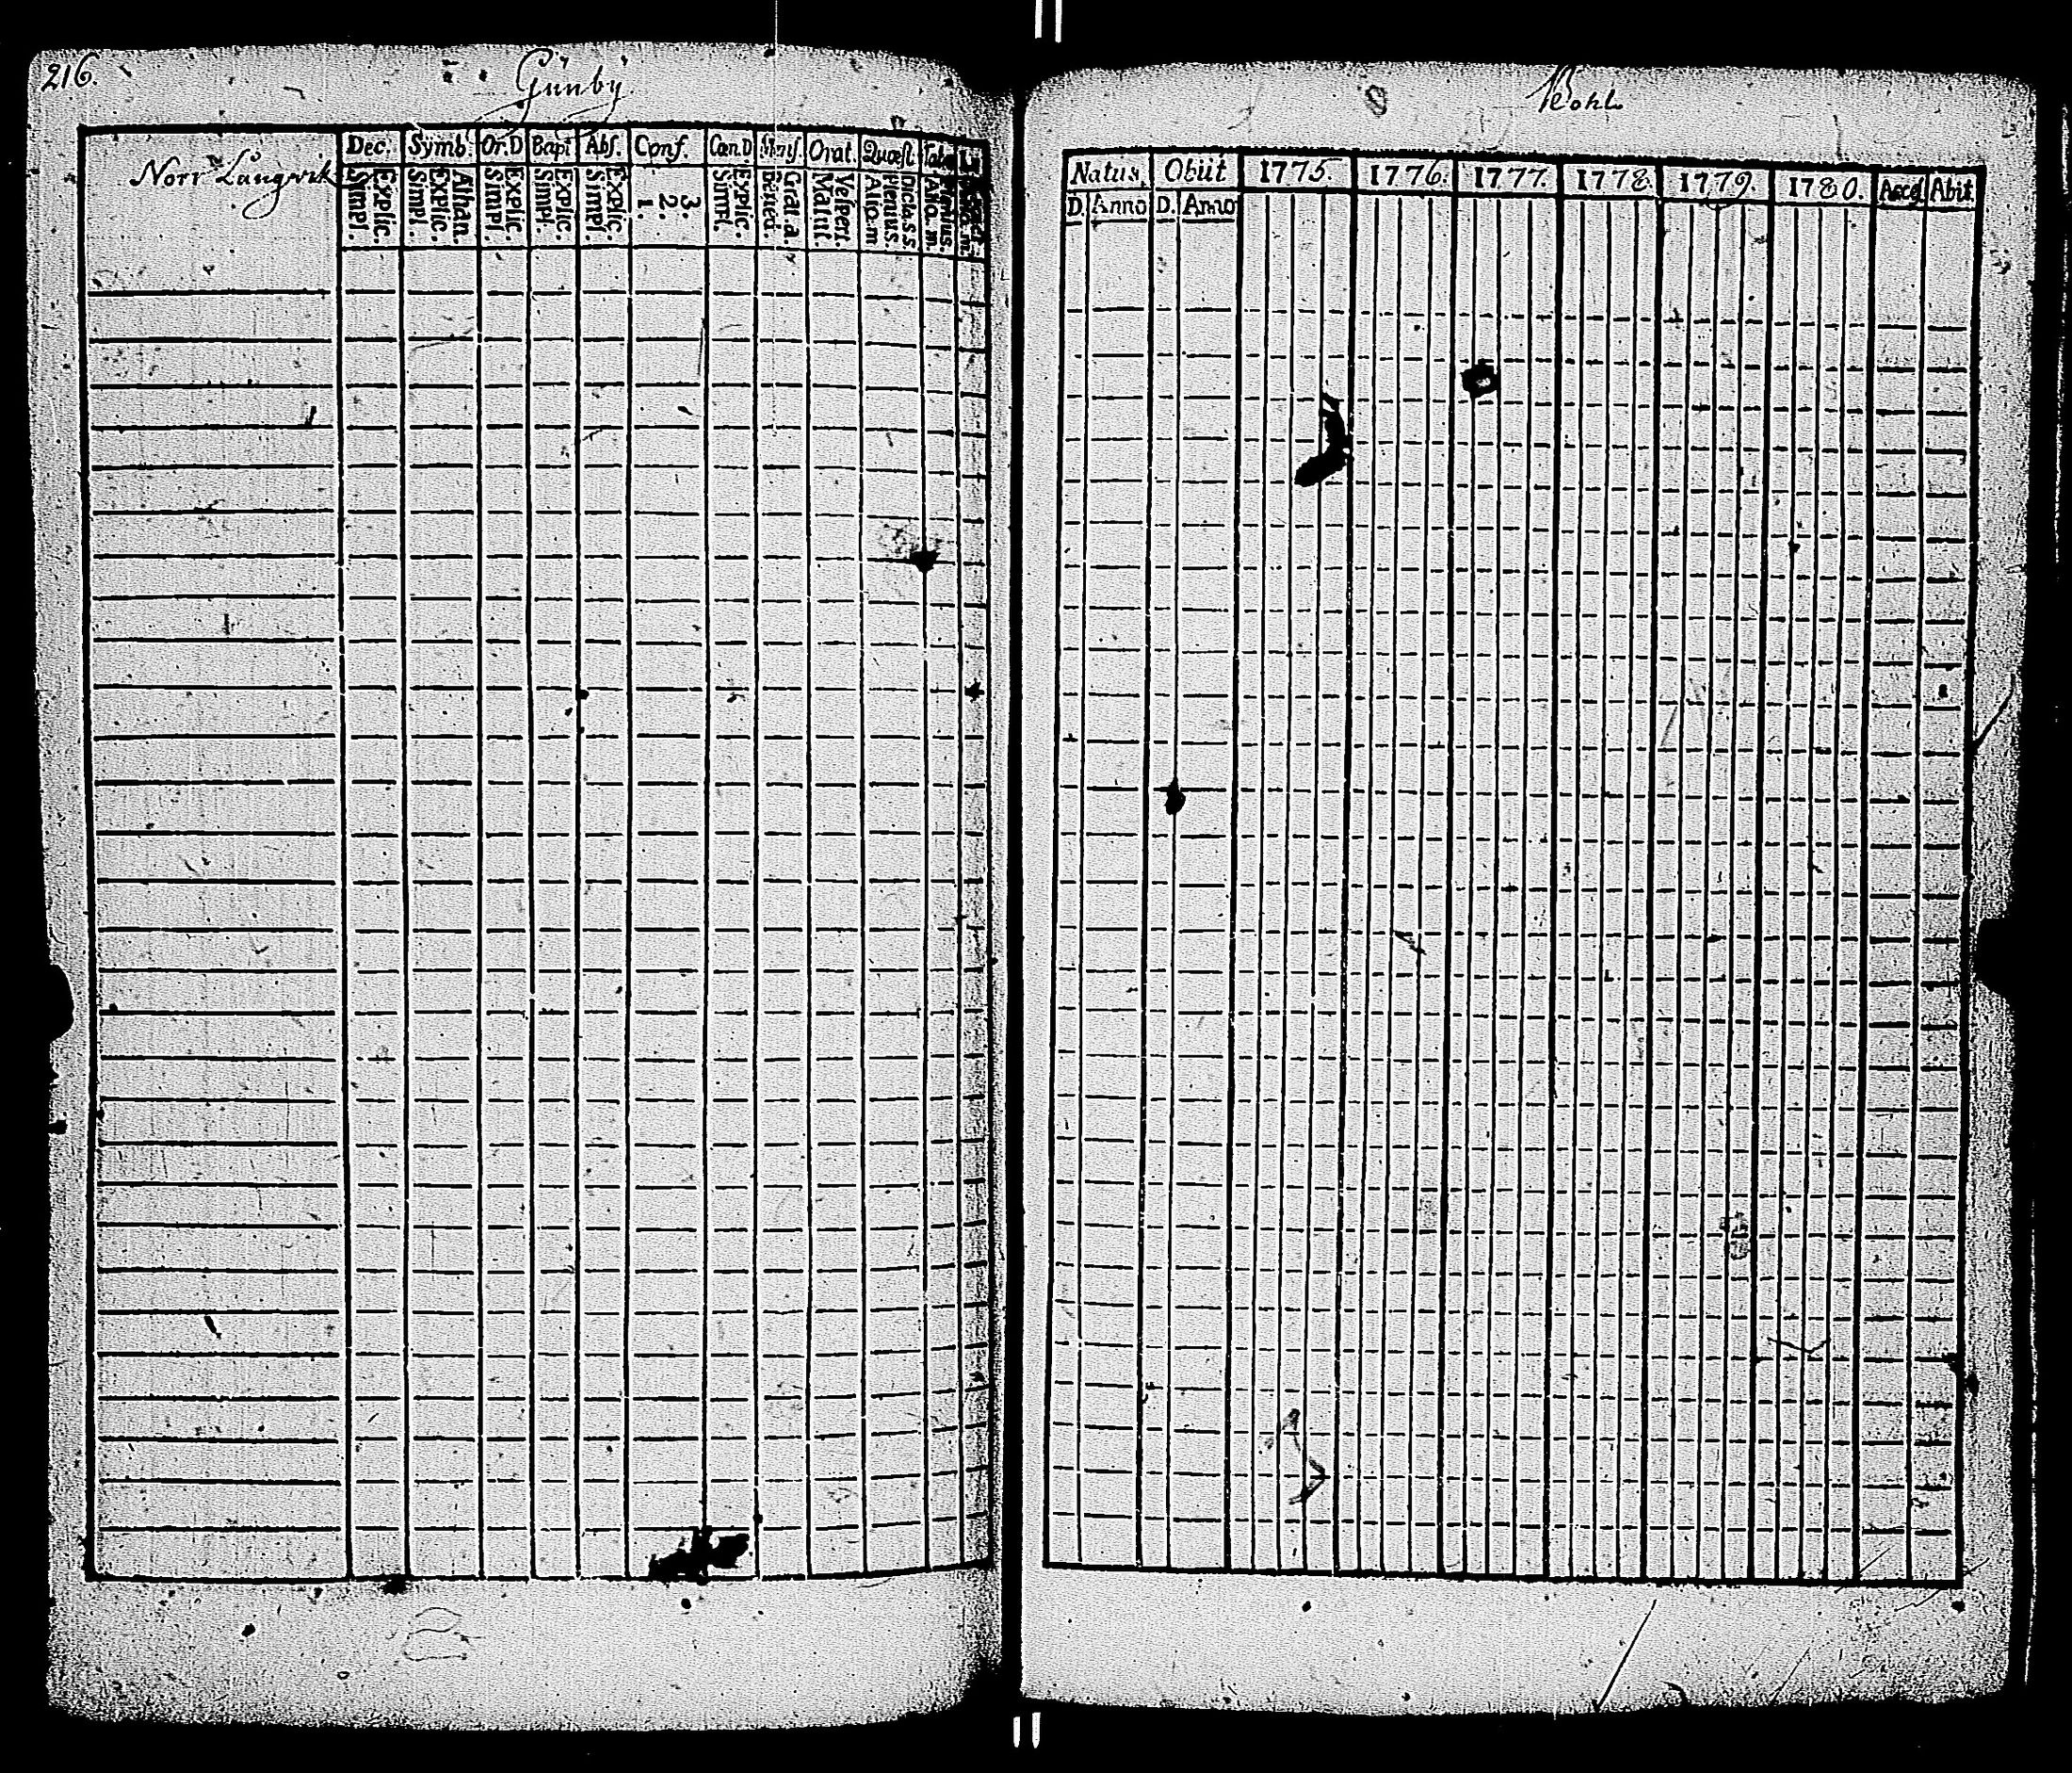 216.
Gunby
Norr Långvik
Dec. Symb. Or.D Bapt Abs. Conf. Cœn.D Orat. Quæst.
Simpl. Explic. Simpl. Explic. Athan. Simpl. Explic. Simpl. Explic. Simpl. Explic. 1. 2. 3. Simpl. Explic. Grat. a. Matut. Vespert. Aliq. m Plenius. Dicta s.s.
Kohl
Natus. Obiit 1775. 1776. 1777. 1778. 1779. 1780. Acceſ Abit
D. Anno D. Anno